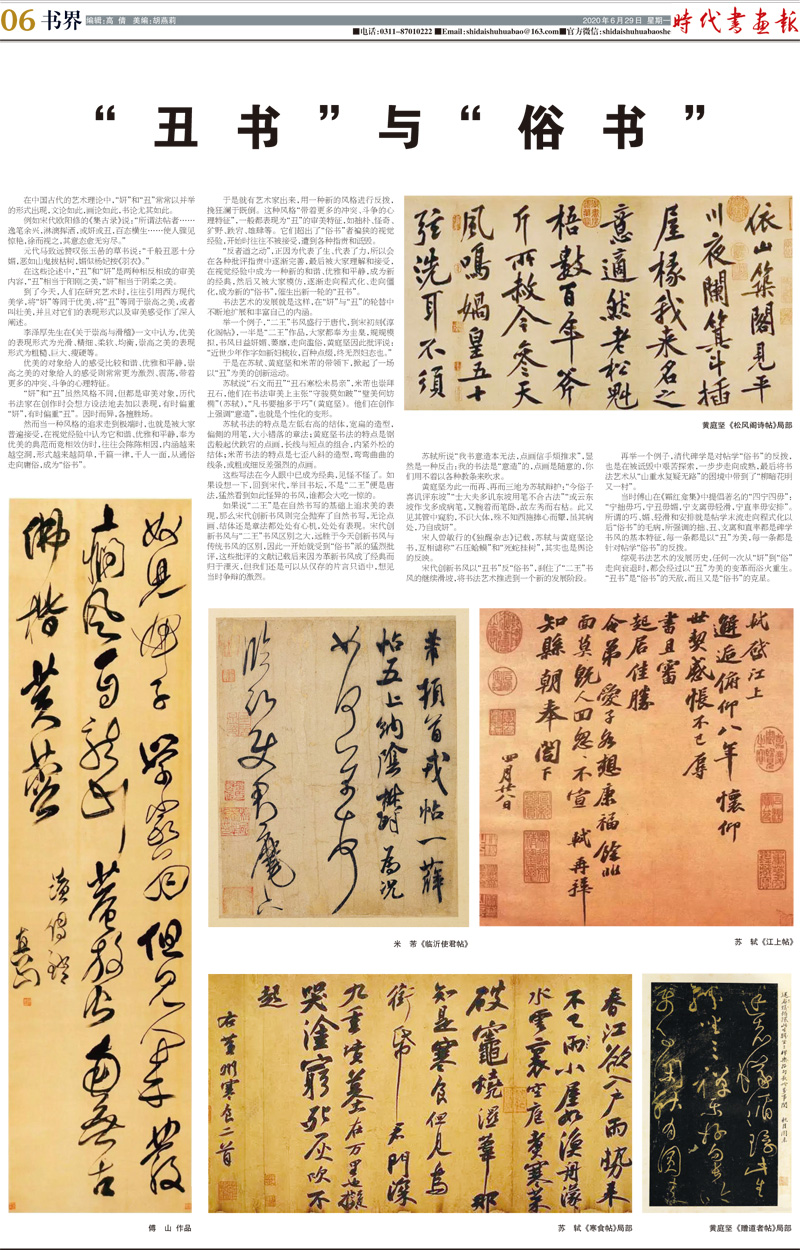 06 书界
编辑:高 倩 美编:胡燕莉
2020年6月29日 星期一
时代书画报
■电话:0311-87010222 ■Email:shidaishuhuabao@163.com■官方微信:shidaishuhuabaoshe
“丑书”与“俗书”
在中国古代的艺术理论中,“妍”和“丑”常常以并举
的形式出现,文论如此,画论如此,书论尤其如此。
例如宋代欧阳修的《集古录》说:“所谓法帖者……
逸笔余兴,淋漓挥洒,或妍或丑,百态横生……使人骤见
惊绝,徐而视之,其意态愈无穷尽。”
元代马致远赞叹张玉喦的草书说:“千般丑恶十分
媚,恶如山鬼拔枯树,媚似杨妃按《羽衣》。”
在这些论述中,“丑”和“妍”是两种相反相成的审美
内容,“丑”相当于阳刚之美,“妍”相当于阴柔之美。
到了今天,人们在研究艺术时,往往引用西方现代
美学,将“妍”等同于优美,将“丑”等同于崇高之美,或者
叫壮美,并且对它们的表现形式以及审美感受作了深入
阐述。
李泽厚先生在《关于崇高与滑稽》一文中认为,优美
的表现形式为光滑、精细、柔软、均衡,崇高之美的表现
形式为粗糙、巨大、瘦硬等。
优美的对象给人的感受比较和谐、优雅和平静,崇
高之美的对象给人的感受则常常更为激烈、震荡,带着
更多的冲突、斗争的心理特征。
“妍”和“丑”虽然风格不同,但都是审美对象,历代
书法家在创作时会想方设法地去加以表现,有时偏重
“妍”,有时偏重“丑”。因时而异,各擅胜场。
然而当一种风格的追求走到极端时,也就是被大家
普遍接受,在视觉经验中认为它和谐、优雅和平静,奉为
优美的典范而竞相效仿时,往往会陈陈相因,内涵越来
越空洞,形式越来越简单,千篇一律,千人一面,从通俗
走向庸俗,成为“俗书”。
于是就有艺术家出来,用一种新的风格进行反拨,
挽狂澜于既倒。这种风格“带着更多的冲突、斗争的心
理特征”,一般都表现为“丑”的审美特征,如拙朴、怪奇、
犷野、跌宕、雄肆等。它们超出了“俗书”者偏狭的视觉
经验,开始时往往不被接受,遭到各种指责和诋毁。
“反者道之动”,正因为代表了生、代表了力,所以会
在各种批评指责中逐渐完善,最后被大家理解和接受,
在视觉经验中成为一种新的和谐、优雅和平静,成为新
的经典,然后又被大家模仿,逐渐走向程式化、走向僵
化,成为新的“俗书”,催生出新一轮的“丑书”。
书法艺术的发展就是这样,在“妍”与“丑”的轮替中
不断地扩展和丰富自己的内涵。
举一个例子,“二王”书风盛行于唐代,到宋初刻《淳
化阁帖》,一半是“二王”作品,大家都奉为圭臬,规规模
拟,书风日益妍媚、萎靡,走向温俗,黄庭坚因此批评说:
“近世少年作字如新妇梳妆,百种点缀,终无烈妇态也。”
于是在苏轼、黄庭坚和米芾的带领下,掀起了一场
以“丑”为美的创新运动。
苏轼说“石文而丑”“丑石寒松未易亲”,米芾也崇拜
丑石,他们在书法审美上主张“守骏莫如跛”“璧美何妨
橢”(苏轼),“凡书要拙多于巧”(黄庭坚)。他们在创作
上强调“意造”,也就是个性化的变形。
苏轼书法的特点是左低右高的结体,宽扁的造型,
偏侧的用笔,大小错落的章法;黄庭坚书法的特点是倒
还般起伏跌宕的点画,长线与短点的组合,内紧外松的
结体;米芾书法的特点是七歪八斜的造型,弯弯曲曲的
线条,或粗或细反差强烈的点画。
这些写法在今人眼中已成为经典,见怪不怪了。如
果设想一下,回到宋代,举目书坛,不是“二王”便是唐
法,猛然看到如此怪异的书风,谁都会大吃一惊的。
如果说“二王”是在自然书写的基础上追求美的表
现,那么宋代创新书风则完全抛弃了自然书写,无论点
画、结体还是章法都处处有心机,处处有表现。宋代创
新书风与“二王”书风区别之大,远胜于今天创新书风与
传统书风的区别,因此一开始就受到“俗书”派的猛烈批
评,这些批评的文献记载后来因为革新书风成了经典而
归于湮灭,但我们还是可以从仅存的片言只语中,想见
当时争辩的激烈。
黄庭坚《松风阁诗帖》局部
苏轼所说“我书意造本无法,点画信手烦推求”,显
然是一种反击:我的书法是“意造”的,点画是随意的,你
们用不着以各种教条来吹求。
黄庭坚为此一而再、再而三地为苏轼辩护:“今俗子
喜讥评东坡”“士大夫多讥东坡用笔不合古法”“或云东
坡作戈多成病笔,又腕着而笔卧,故左秀而右枯。此又
见其管中窥豹,不识大体,殊不知西施捧心而颦,虽其病
处,乃自成妍”。
宋人曾敏行的《独醒杂志》记载,苏轼与黄庭坚论
书,互相谑称“石压蛤蟆”和“死蛇挂树”,其实也是舆论
的反映。
宋代创新书风以“丑书”反“俗书”,刹住了“二王”书
风的继续滑坡,将书法艺术推进到一个新的发展阶段。
再举一个例子,清代碑学是对帖学“俗书”的反拨,
也是在被诋毁中艰苦探索,一步步走向成熟,最后将书
法艺术从“山重水复疑无路”的困境中带到了“柳暗花明
又一村”。
当时傅山在《霜红龛集》中提倡著名的“四宁四毋”:
“宁拙毋巧,宁丑毋媚,宁支离毋轻滑,宁直率毋安排”。
所谓的巧、媚、轻滑和安排就是帖学末流走向程式化以
后“俗书”的毛病,所强调的拙、丑、支离和直率都是碑学
书风的基本特征,每一条都是以“丑”为美,每一条都是
针对帖学“俗书”的反拨。
综观书法艺术的发展历史,任何一次从“妍”到“俗”
走向衰退时,都会经过以“丑”为美的变革而浴火重生。
“丑书”是“俗书”的天敌,而且又是“俗书”的克星。
依山筑阁见平
川夜阑箕斗插
屋椽我来名之
意适然老松魁
梧数百年斧
斤所赦今参天
风鸣娲皇五十
弦洗耳不须
米 芾《临沂使君帖》
轼启江上
邂逅俯仰八年怀仰
世契感怅不已辱
书且审
起居佳胜
令弟爱子各想康福余非
面莫既人回怱怱不宣轼再拜
知县朝奉阁下
四月廿八日
苏 轼《江上帖》
春江欲入户雨势来
不已雨小屋如渔舟濛
水云里空庖煮寒菜
破灶烧湿苇那
知是寒食但见乌
衔纸君门深
九重坟墓在万里也拟
哭涂穷死灰吹不
起
右黄州寒食二首
傅 山 作品
苏 轼《寒食帖》局部
黄庭坚《赠道者帖》局部